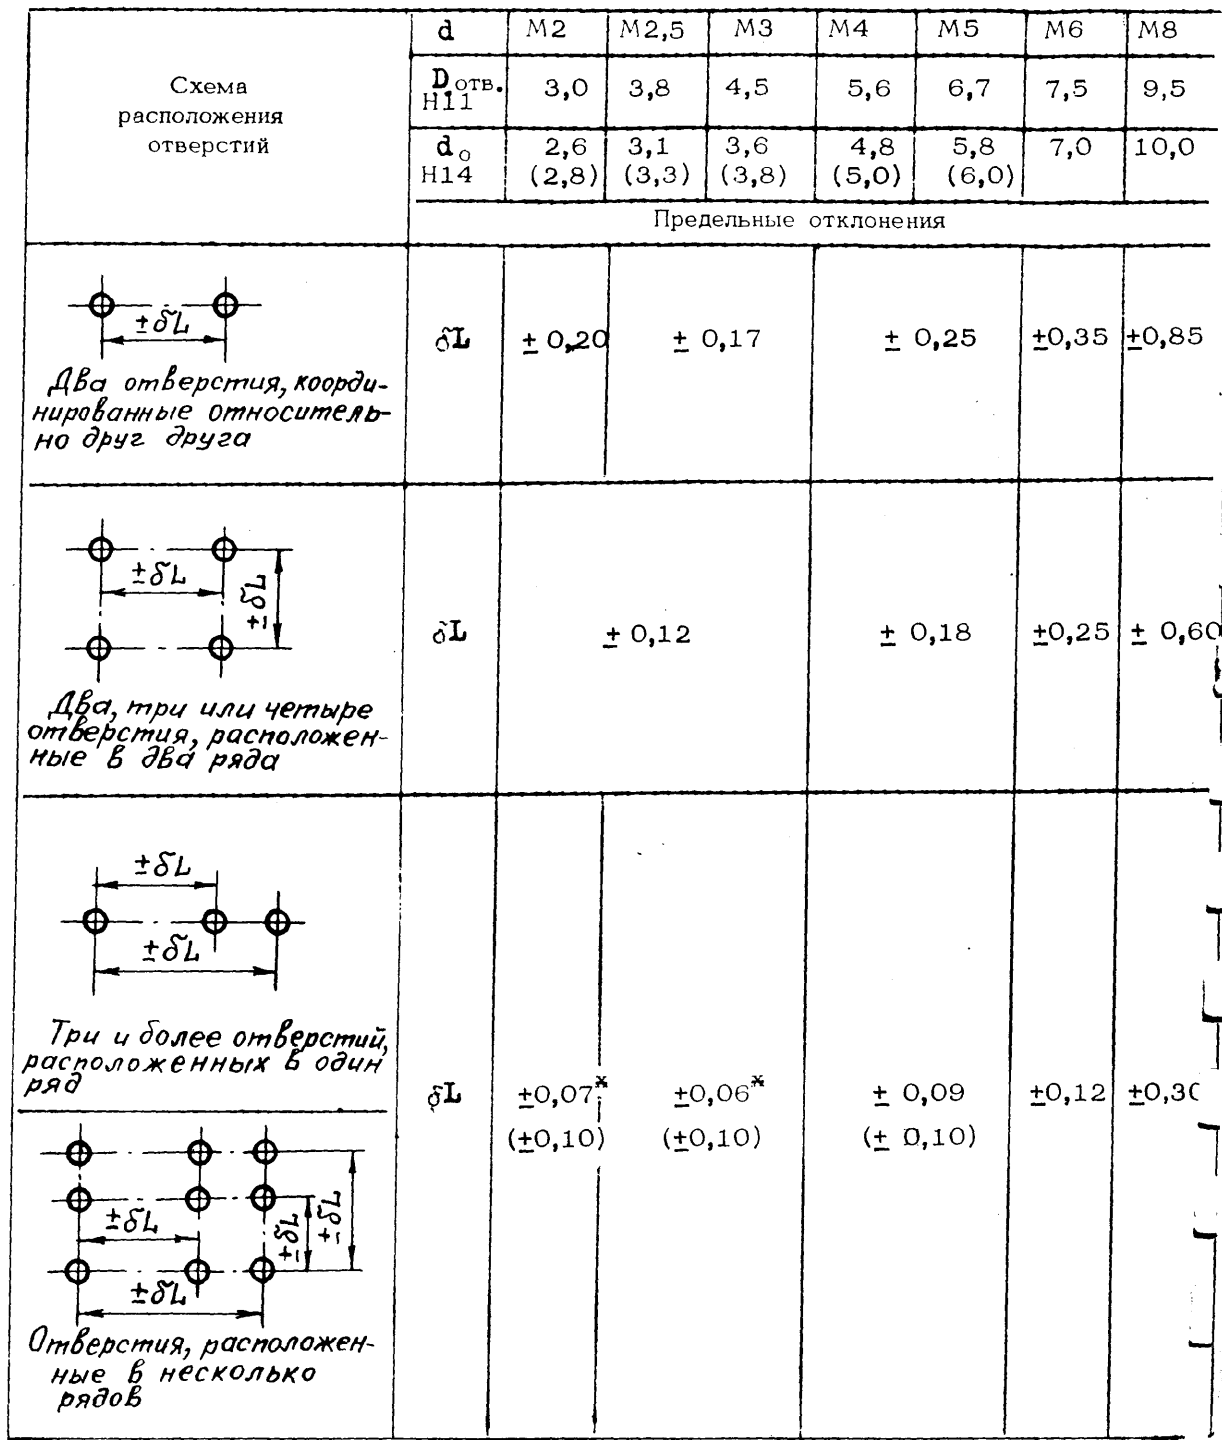 Схема
расположения
отверстий
d M2 M2,5 M3 M4 M5 M6 M8
Dотв. 3,0 3,8 4,5 5,6 6,7 7,5 9,5
H11
d₀ 2,6 3,1 3,6 4,8 5,8 7,0 10,0
H14 (2,8) (3,3) (3,8) (5,0) (6,0)
Предельные отклонения
±δL
Два отверстия, коорди-
нированные относитель-
но друг друга
δL ± 0,20 ± 0,17 ± 0,25 ±0,35 ±0,85
±δL
±δL
Два, три или четыре
отверстия, расположен-
ные в два ряда
δL ± 0,12 ± 0,18 ±0,25 ± 0,60
±δL
±δL
Три и более отверстий,
расположенных в один
ряд
δL ±0,07* ±0,06* ± 0,09 ±0,12 ±0,30
(±0,10) (±0,10) (± 0,10)
±δL
±δL
±δL
±δL
Отверстия, расположен-
ные в несколько
рядов